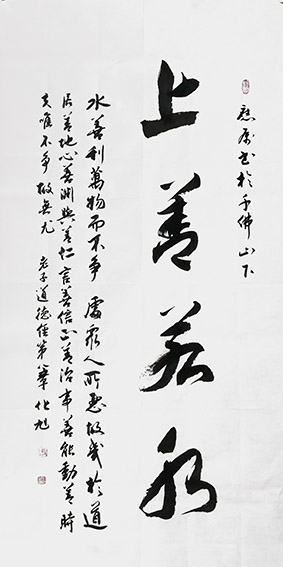 應属书於千佛山下
上善若水
水善利萬物而不争處衆人所惡故幾於道
居善地心善渊與善仁言善信正善治事善能動善時
夫唯不争故無尤老子道德经第八章化旭